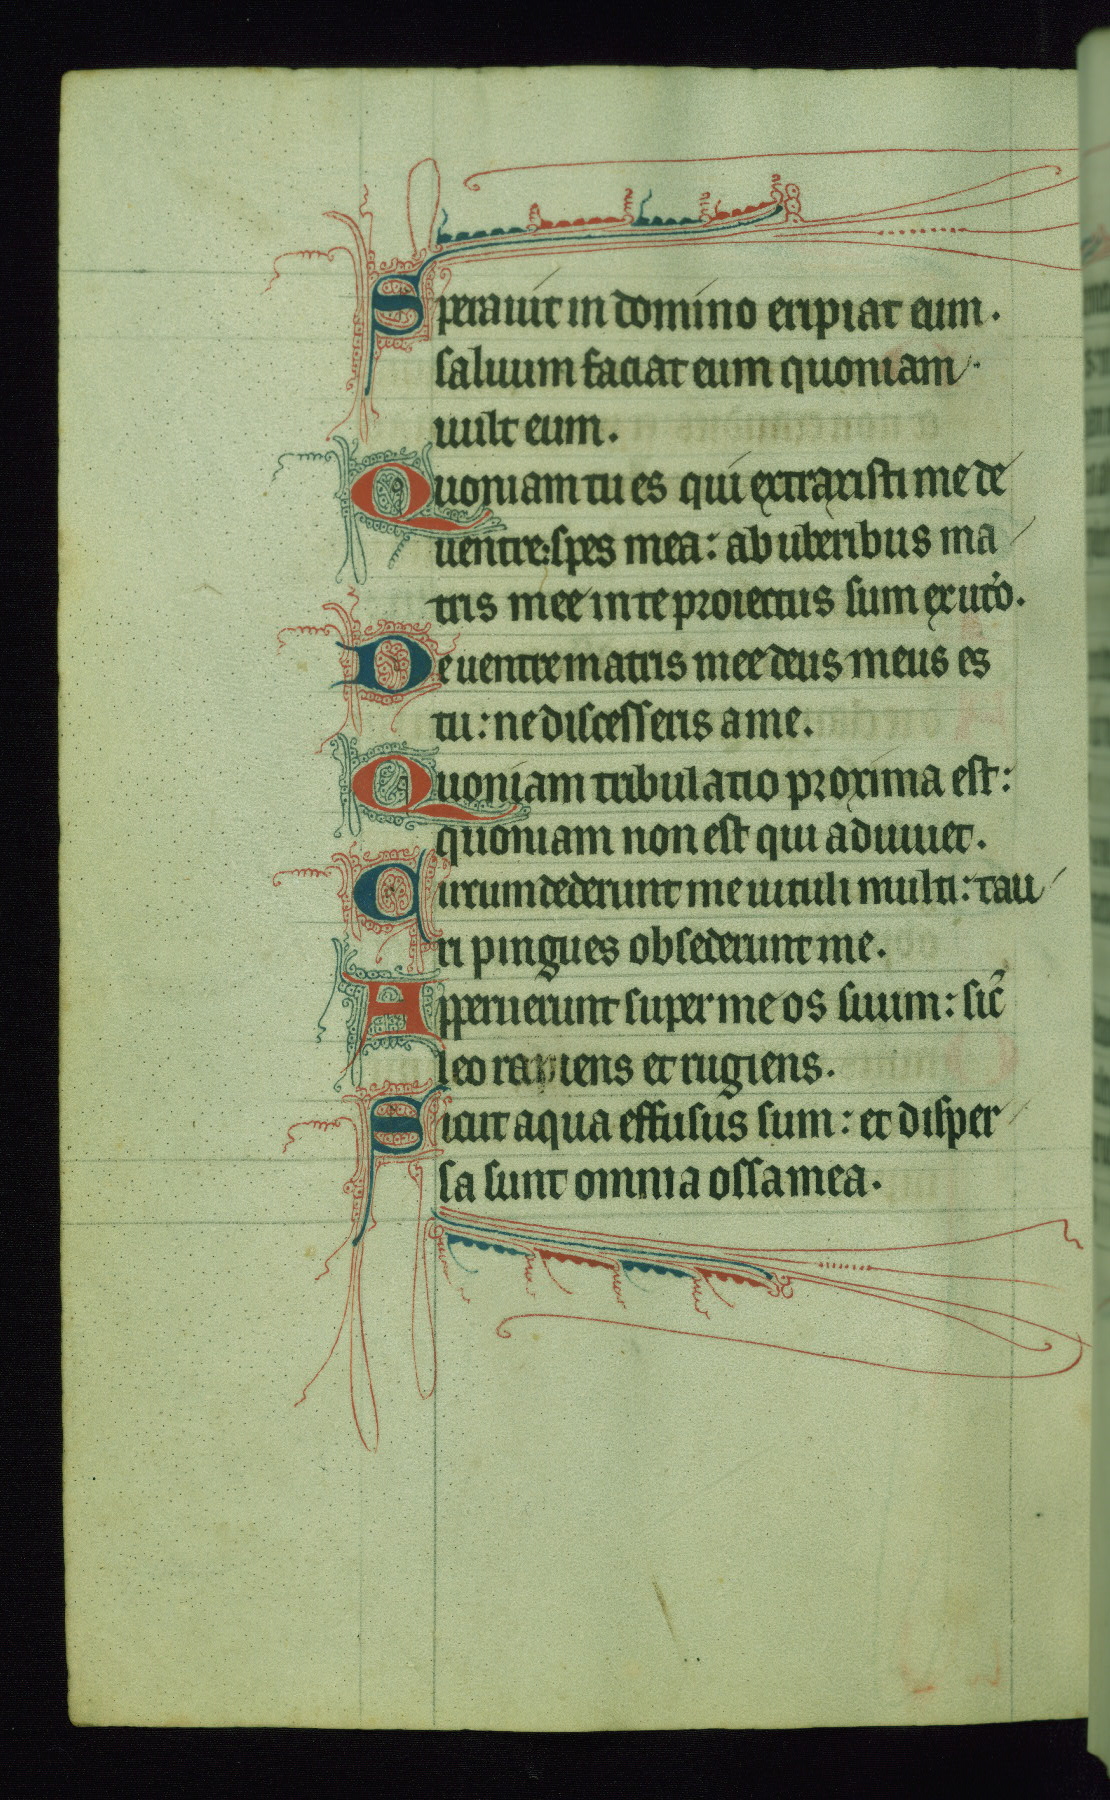 Sperauit in domino eripiat eum.
saluum faciat eum quoniam
uult eum.
Quoniam tu es qui extraxisti me de
uentre: spes mea: ab uberibus ma
tris mee in te proiectus sum ex uto.
De uentre matris mee deus meus es
tu: ne discesseris a me.
Quoniam tribulatio proxima est:
quoniam non est qui adiuuet.
Circumdederunt me uituli multi: tau
ri pingues obsederunt me.
Apperuerunt super me os suum: sic̄
leo rapiens et rugiens.
Sicut aqua effusus sum: et disper
sa sunt omnia ossa mea.